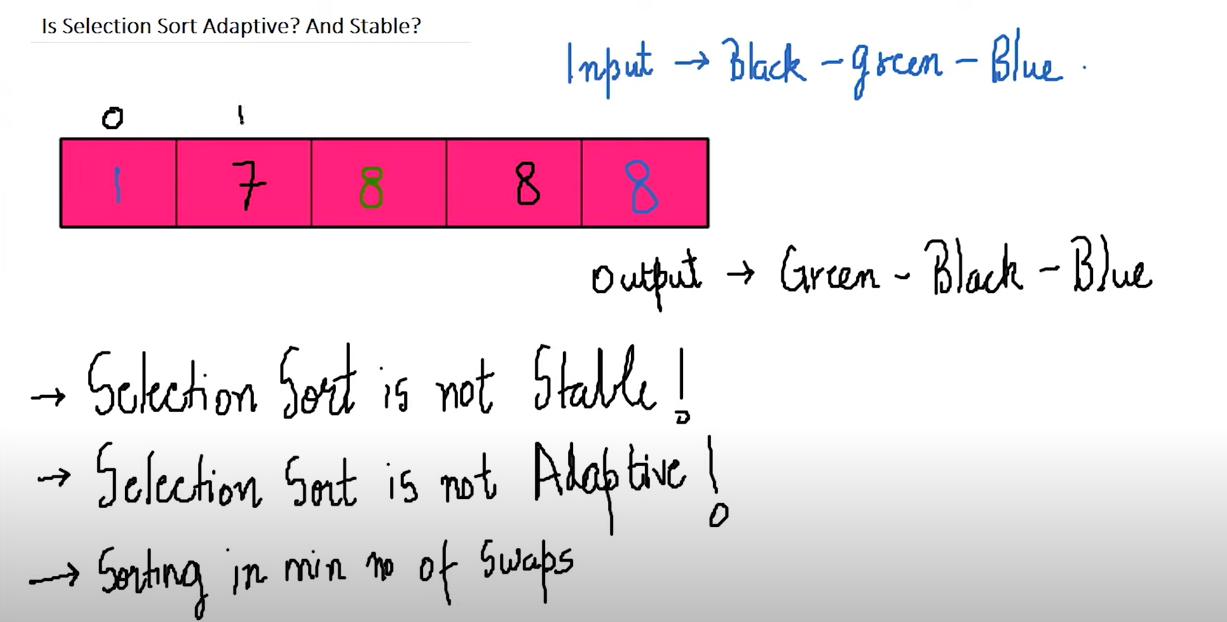 Is Selection Sort Adaptive? And Stable?
Input → Black - green - Blue .
0 1
1 7 8 8 8
Output → Green - Black - Blue
→ Selection Sort is not Stable!
→ Selection Sort is not Adaptive!
→ Sorting in min no of Swaps